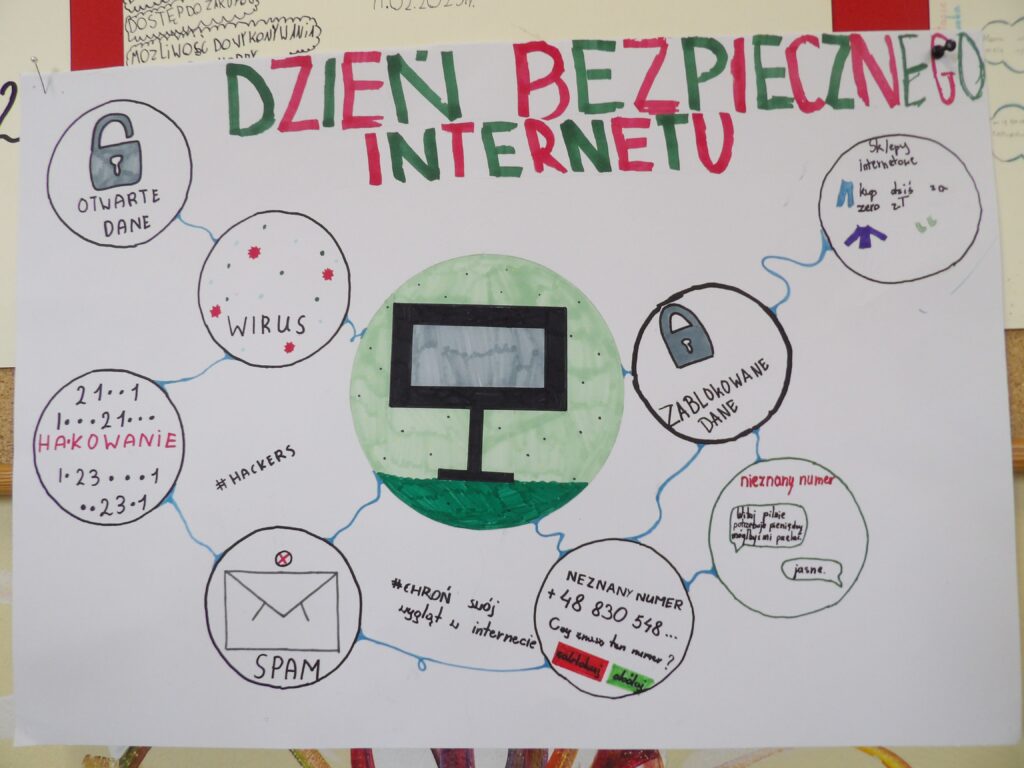 DOSTĘP DO ZAKUPÓW
MOŻLIWOŚĆ DOKONYWANIA
11.02.2025r.
2
DZIEŃ BEZPIECZNEGO
INTERNETU
OTWARTE
DANE
WIRUS
21••1
1•••21•••
HAKOWANIE
1•23••••1
••23•1
#HACKERS
SPAM
#CHROŃ swój
wygląt w internecie
NEZNANY NUMER
+48 830 548...
Czy znasz ten numer?
zablokuj
nieznany numer
Witaj pilnie
potrzebuje pieniędzy
mógłbyś mi
jasne.
ZABLOKOWANE
DANE
Sklepy
internetowe
kup dziś za
zero zł